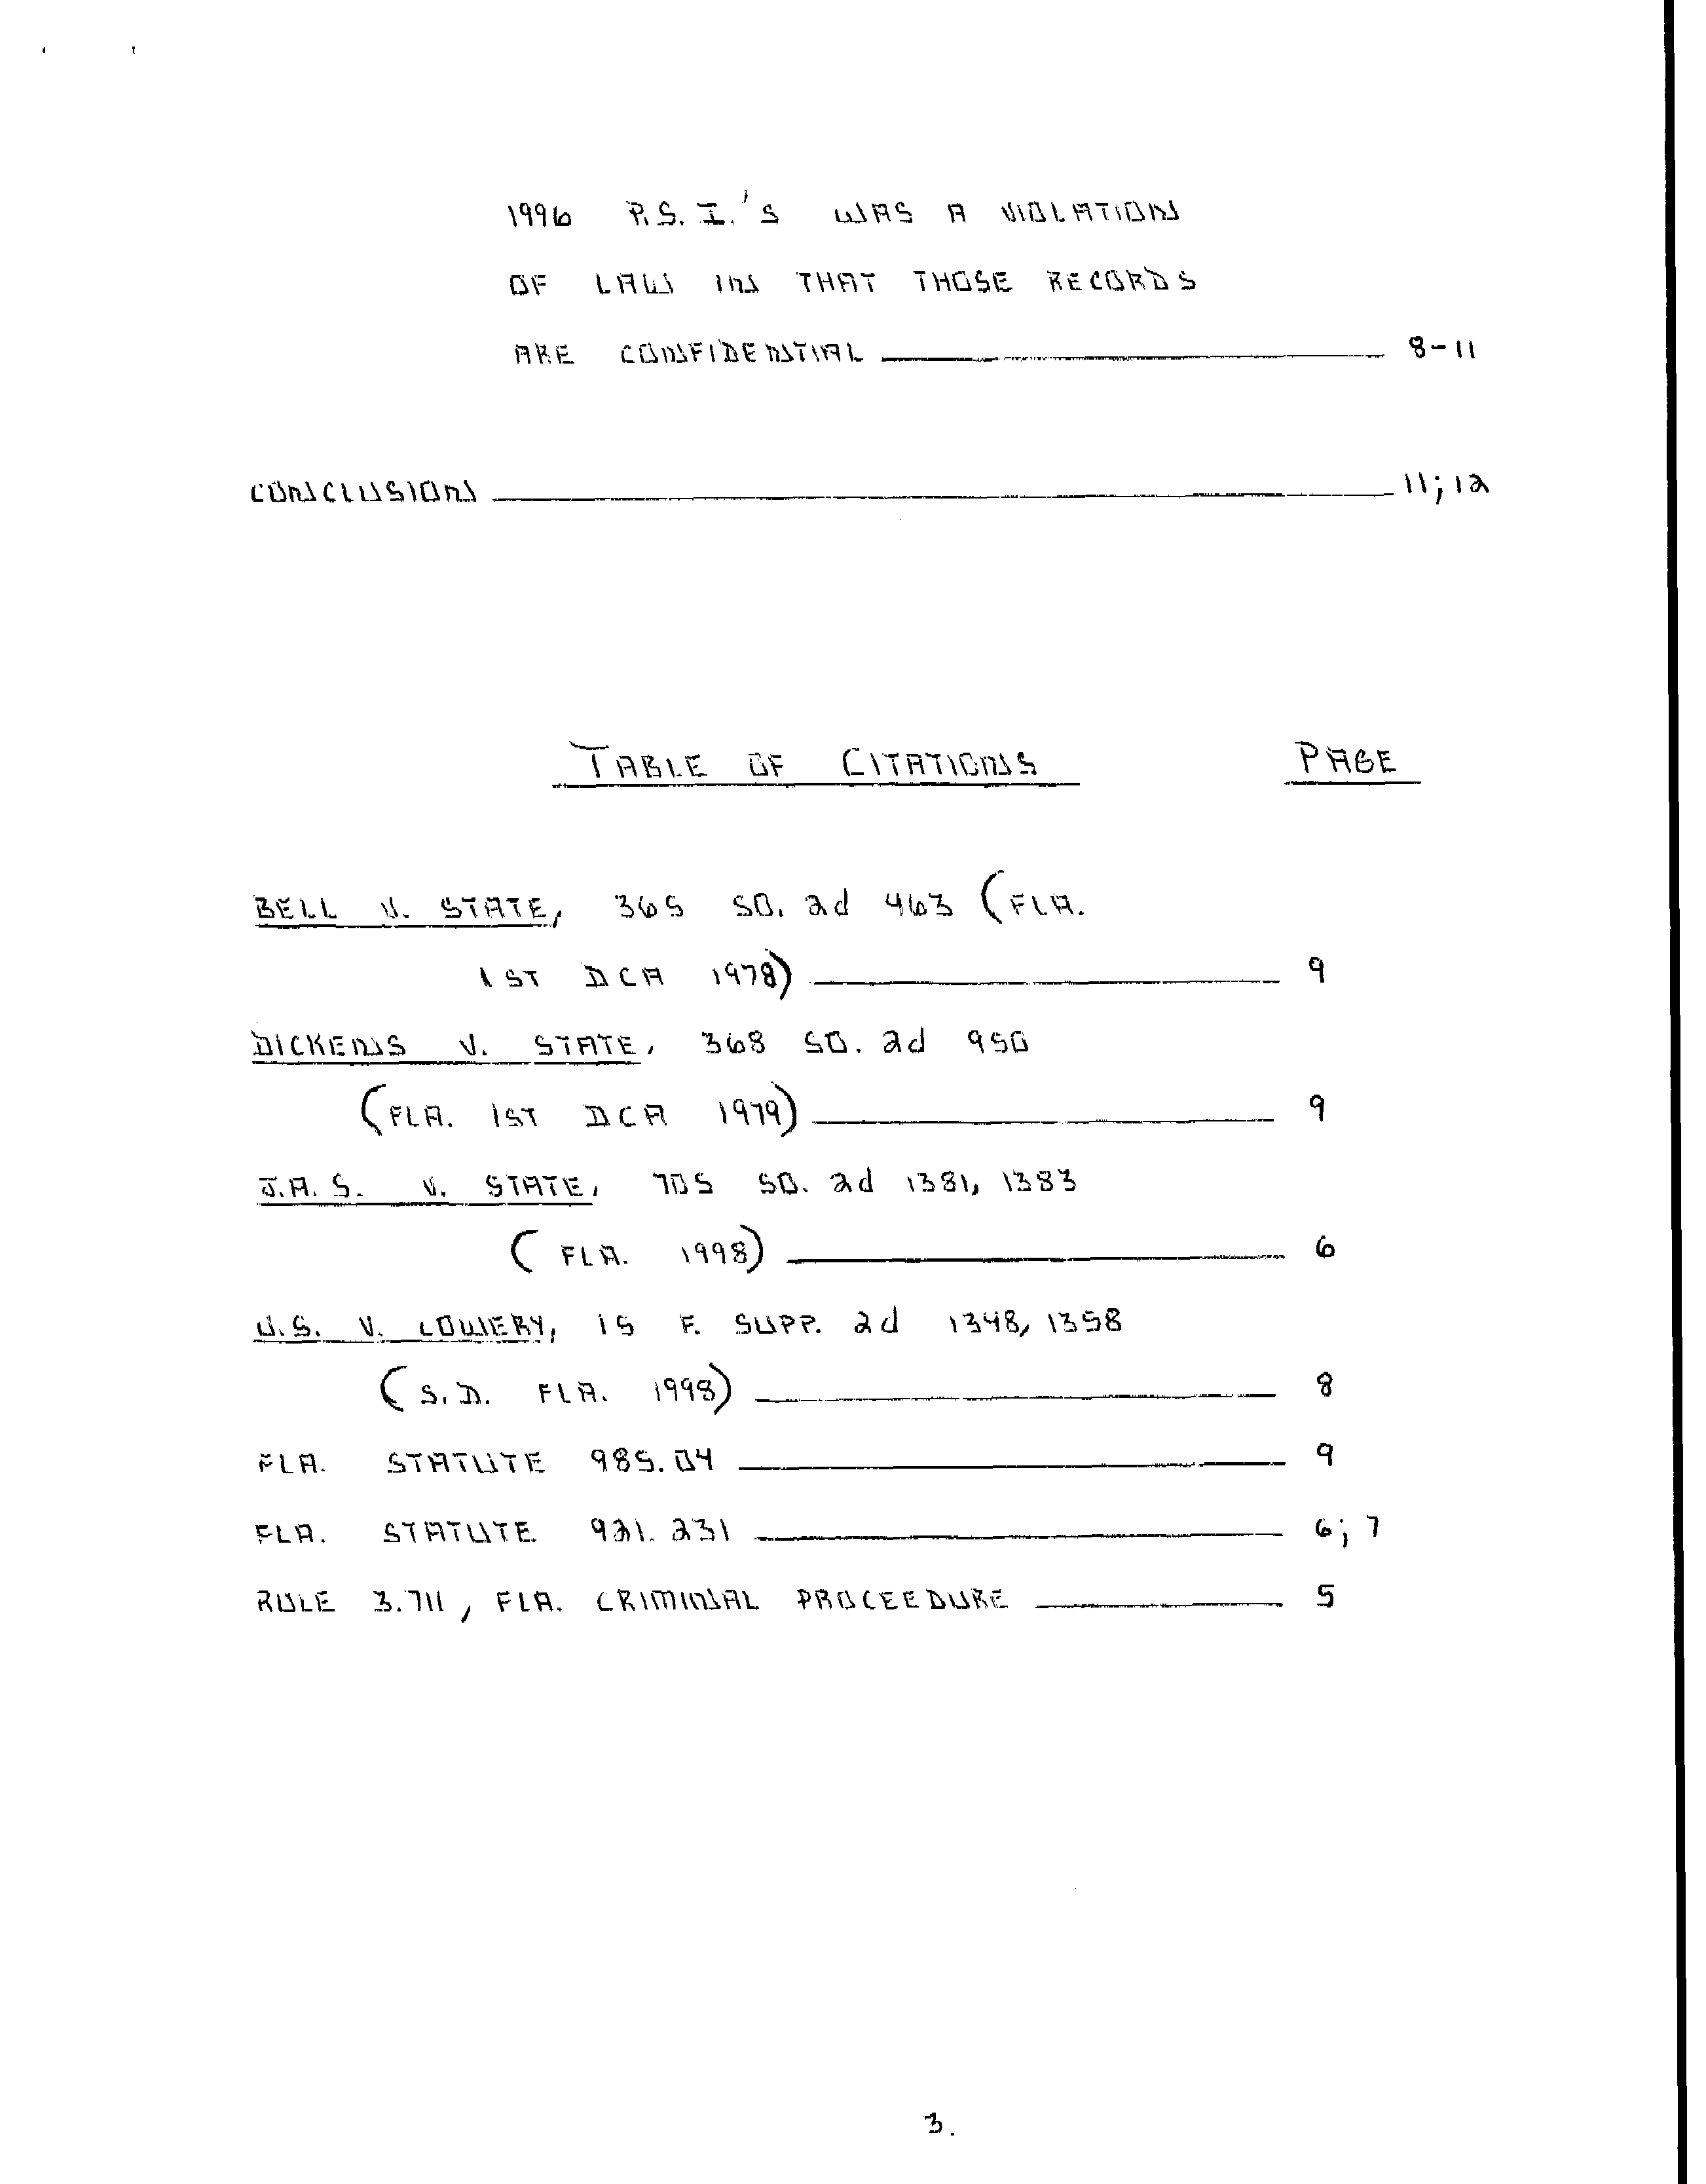 1996 P.S.I.'S WAS A VIOLATION
OF LAW IN THAT THOSE RECORDS
ARE CONFIDENTIAL 8-11
CONCLUSION 11; 12
TABLE OF CITATIONS PAGE
BELL V. STATE, 365 SO. 2d 463 (FLA.
1ST DCA 1978) 9
DICKENS V. STATE, 368 SO. 2d 950
(FLA. 1ST DCA 1979) 9
J.A.S. V. STATE, 705 SO. 2d 1381, 1383
(FLA. 1998) 6
U.S. V. LOWERY, 15 F. SUPP. 2d 1348, 1358
(S.D. FLA. 1998) 8
FLA. STATUTE 985.04 9
FLA. STATUTE 921.231 6; 7
RULE 3.711, FLA. CRIMINAL PROCEEDURE 5
3.